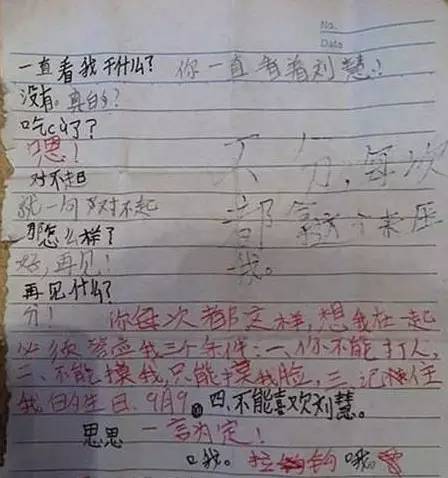 No.
Date
一直看我干什么? 你一直看着刘慧!
没有。真的?
吃cù了?
嗯!
对不起
就一句对不起
那怎么样了
好,再见!
再见什么?
分!
不分,每次
都拿这个来压
我。
你每次都这样,想我在一起
必须答应我三个条件:一、你不能打人,
二、不能摸我,只能摸我脸,三、记住
我的生日,9月9。四、不能喜欢刘慧。
思思 一言为定!
哦。拉钩 哦。